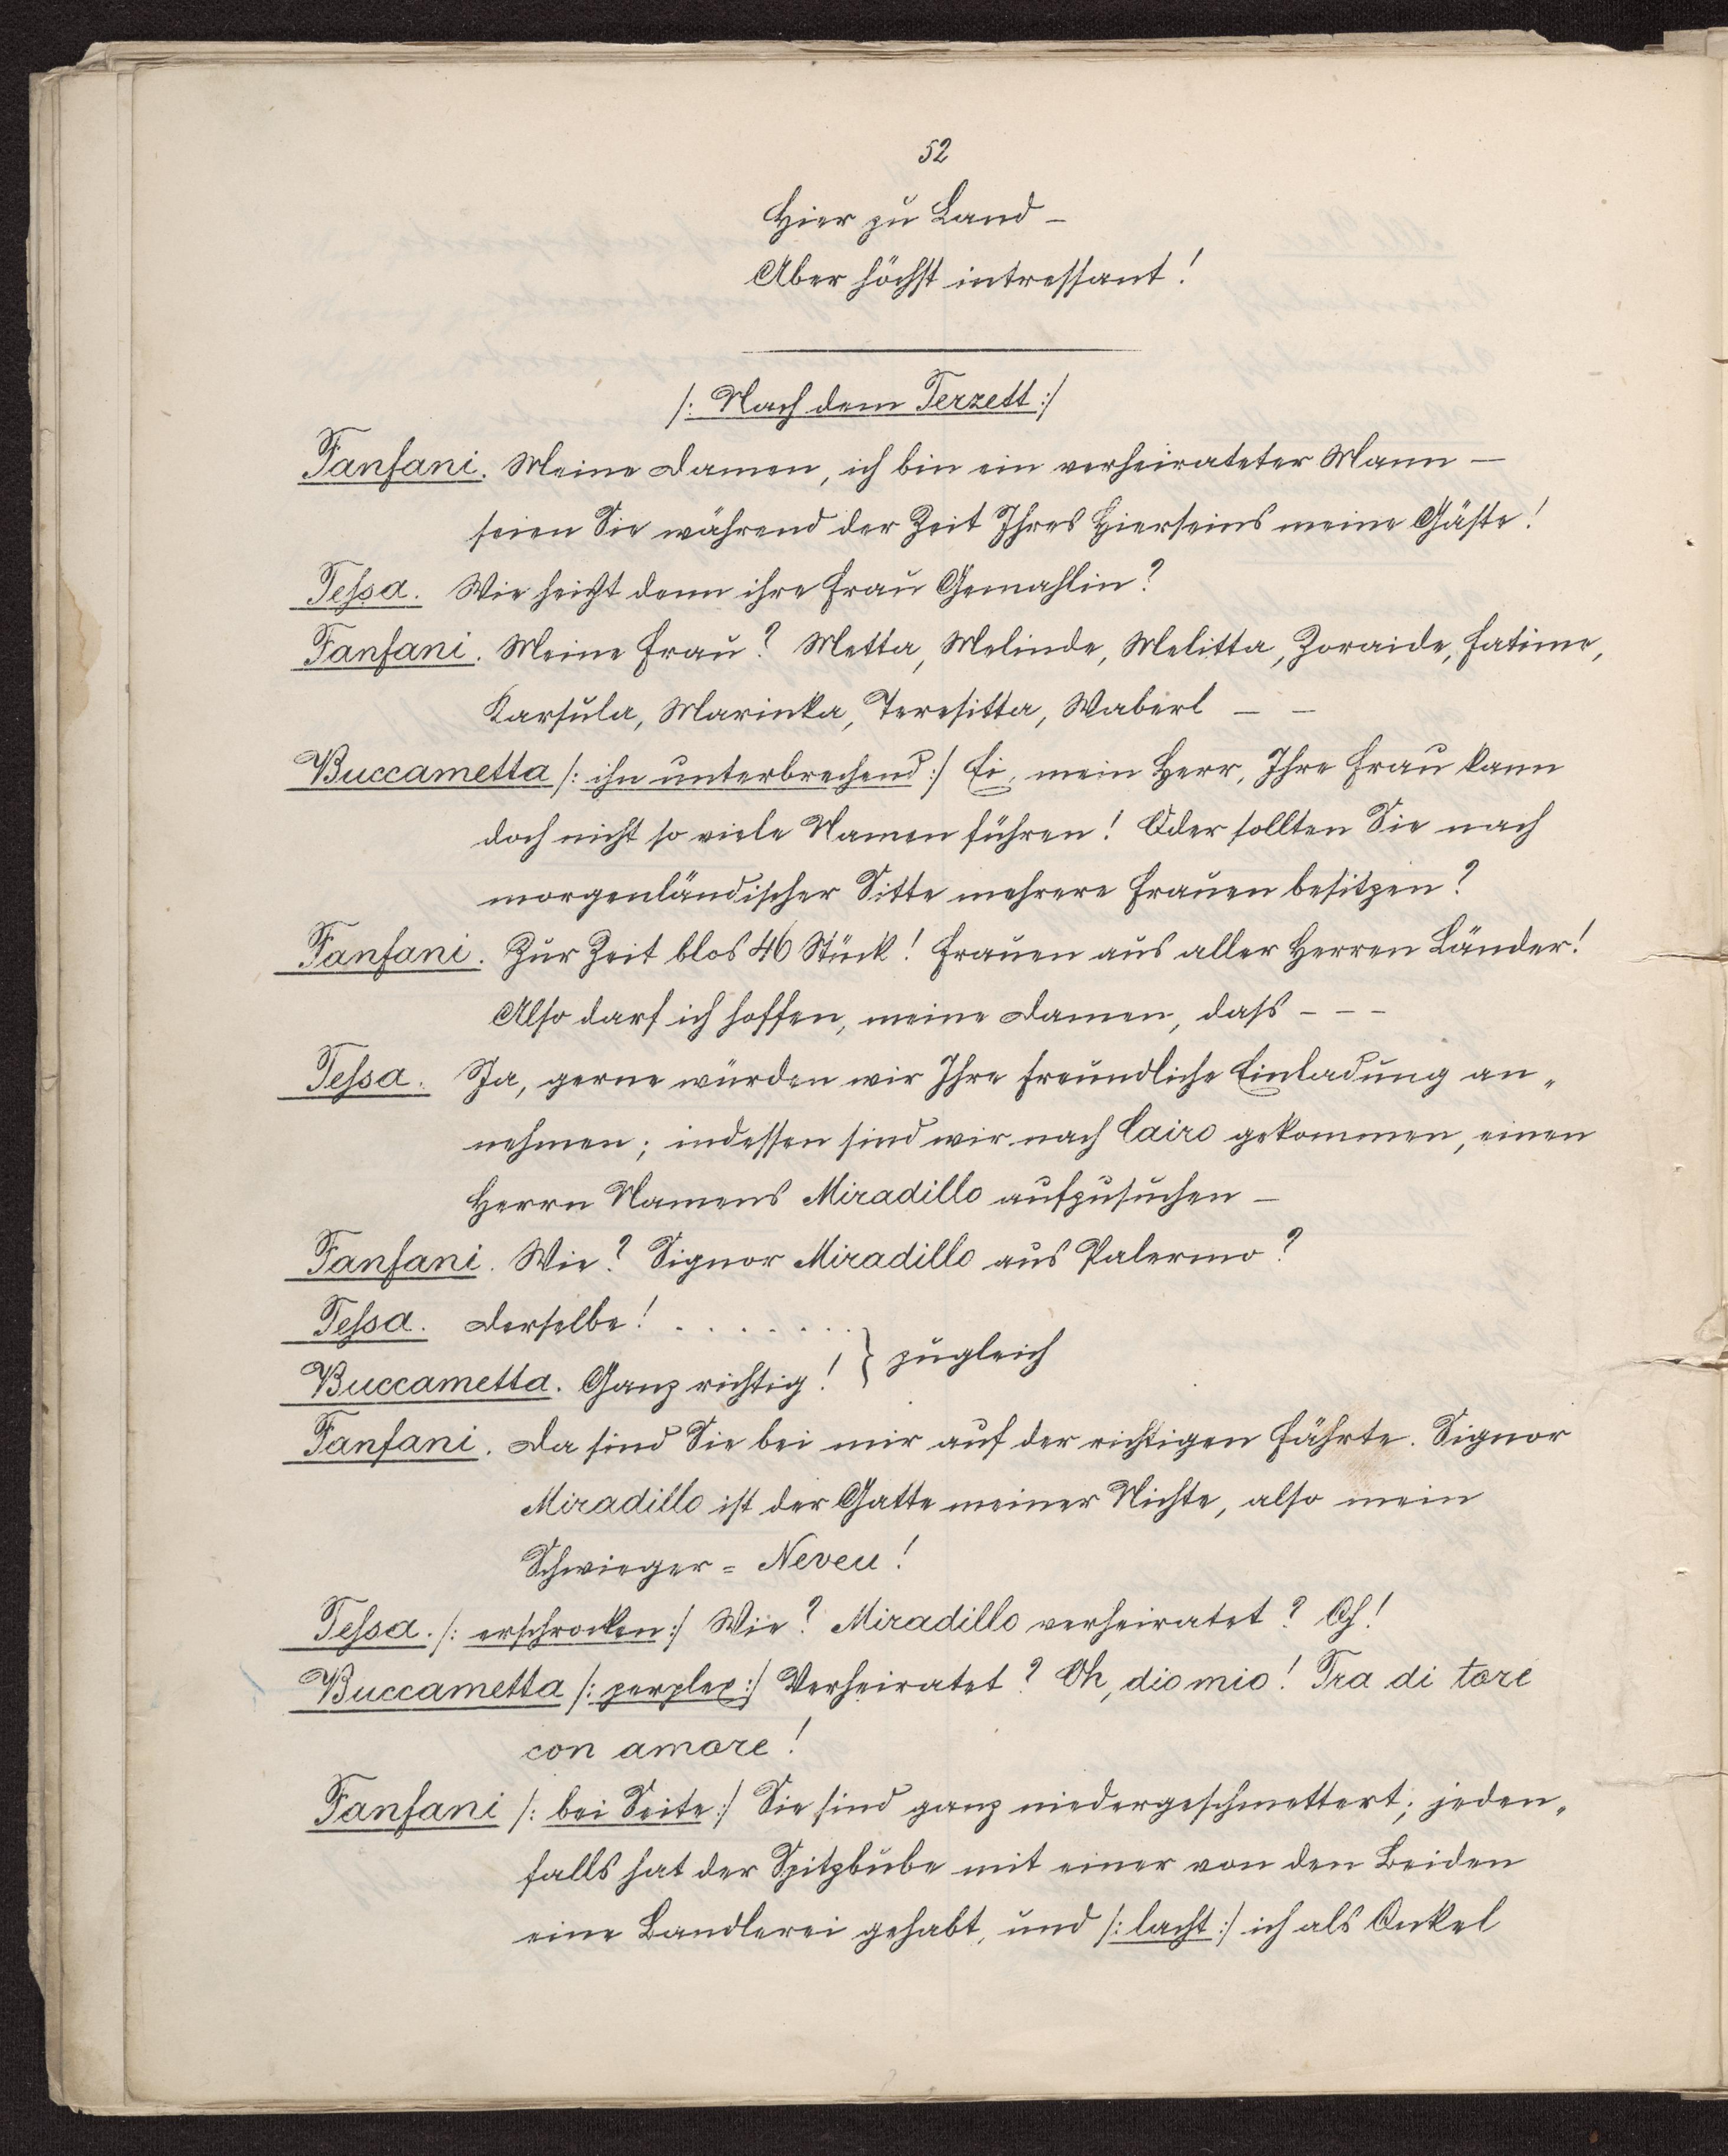 52
Hier zu Land –
Aber höchst intressant!
/: Nach dem Terzett :/
Fanfani. Meine Damen, ich bin ein verheirateter Mann –
seien Sie während der Zeit Ihres Hierseins meine Gäste!
Tessa. Wie heißt denn ihre Frau Gemahlin?
Fanfani. Meine Frau? Metta, Melinde, Melitta, Zoraide, Fatime,
Karsula, Marinka, Teresitta, Waberl – –
Buccametta /: ihn unterbrechend :/ Ei, mein Herr, Ihre Frau kann
doch nicht so viele Namen führen! Oder sollten Sie nach
morgenländischer Sitte mehrere Frauen besitzen?
Fanfani. Zur Zeit blos 46 Stück! Frauen aus aller Herren Länder!
Also darf ich hoffen, meine Damen, dass – – –
Tessa. Ja, gerne würden wir Ihre freundliche Einladung an„
nehmen; indessen sind wir nach Cairo gekommen, einen
Herrn Namens Miradillo aufzusuchen –
Fanfani. Wie? Signor Miradillo aus Palermo?
Tessa. Derselbe! . . . . . . .
Buccametta. Ganz richtig! } zugleich
Fanfani. Da sind Sie bei mir auf der richtigen Fährte. Signor
Miradillo ist der Gatte meiner Nichte, also mein
Schwieger = Neveu!
Tessa. /: erschrocken :/ Wie? Miradillo verheiratet? Oh!
Buccametta /: perplex :/ Verheiratet? Oh, dio mio! Tra di tore
con amore!
Fanfani /: bei Seite :/ Sie sind ganz niedergeschmettert; jeden„
falls hat der Spitzbube mit einer von den Beiden
eine Bandlerei gehabt, und /: lacht :/ ich als Onkel